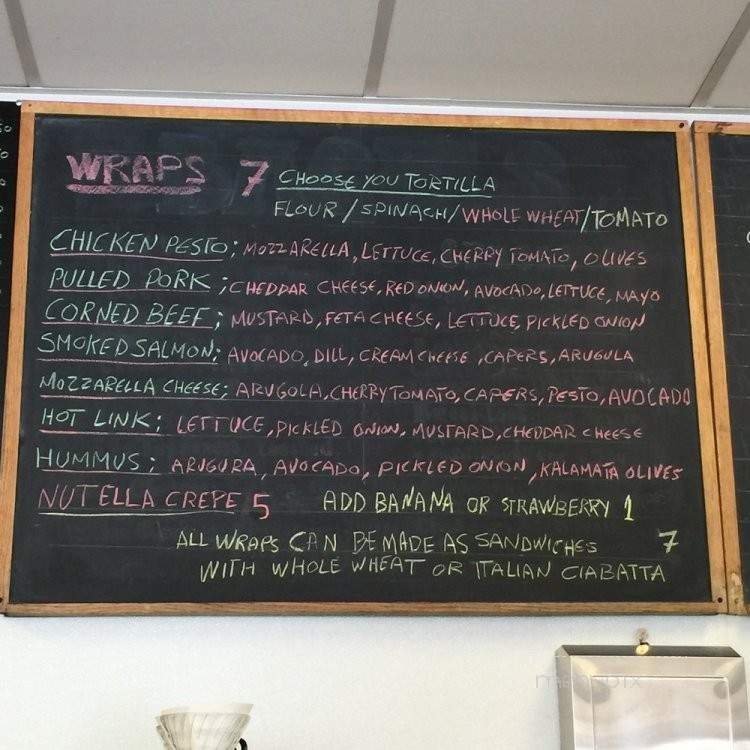 WRAPS 7 CHOOSE YOU TORTILLA
FLOUR/SPINACH/WHOLE WHEAT/TOMATO
CHICKEN PESTO; MOZZARELLA, LETTUCE, CHERRY TOMATO, OLIVES
PULLED PORK; CHEDDAR CHEESE, RED ONION, AVOCADO, LETTUCE, MAYO
CORNED BEEF; MUSTARD, FETA CHEESE, LETTUCE, PICKLED ONION
SMOKED SALMON; AVOCADO, DILL, CREAM CHEESE, CAPERS, ARUGULA
MOZZARELLA CHEESE; ARUGOLA, CHERRY TOMATO, CAPERS, PESTO, AVOCADO
HOT LINK; LETTUCE, PICKLED ONION, MUSTARD, CHEDDAR CHEESE
HUMMUS; ARUGURA, AVOCADO, PICKLED ONION, KALAMATA OLIVES
NUTELLA CREPE 5 ADD BANANA OR STRAWBERRY 1
ALL WRAPS CAN BE MADE AS SANDWICHES 7
WITH WHOLE WHEAT OR ITALIAN CIABATTA